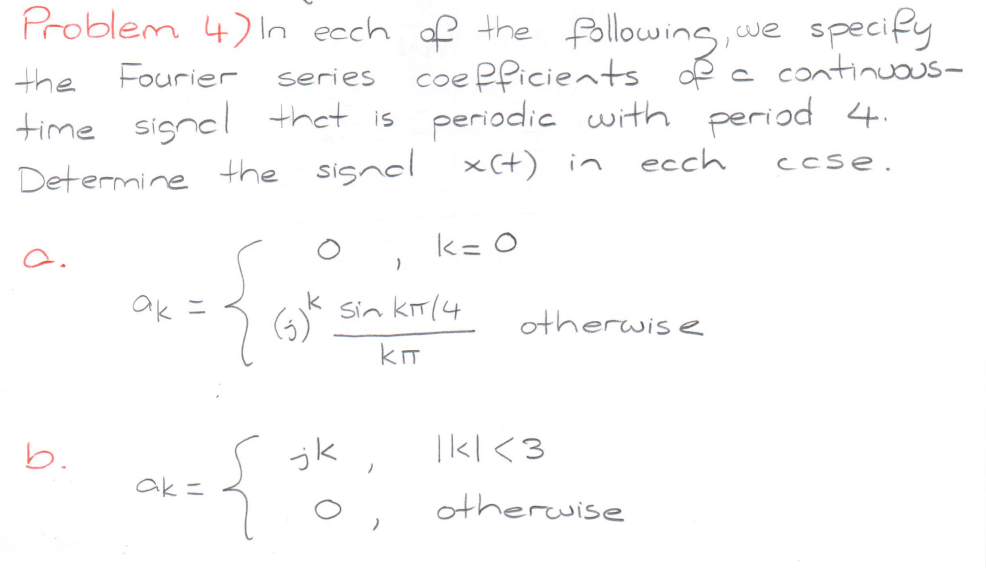 Problem 4) In each of the following, we specify
the Fourier series coefficients of a continuous-
time signal that is periodic with period 4.
Determine the signal x(t) in each case.
a.
0 , k = 0
ak = { (j)^k sin kπ/4 / kπ otherwise
b.
jk , |k| < 3
ak = { 0 , otherwise